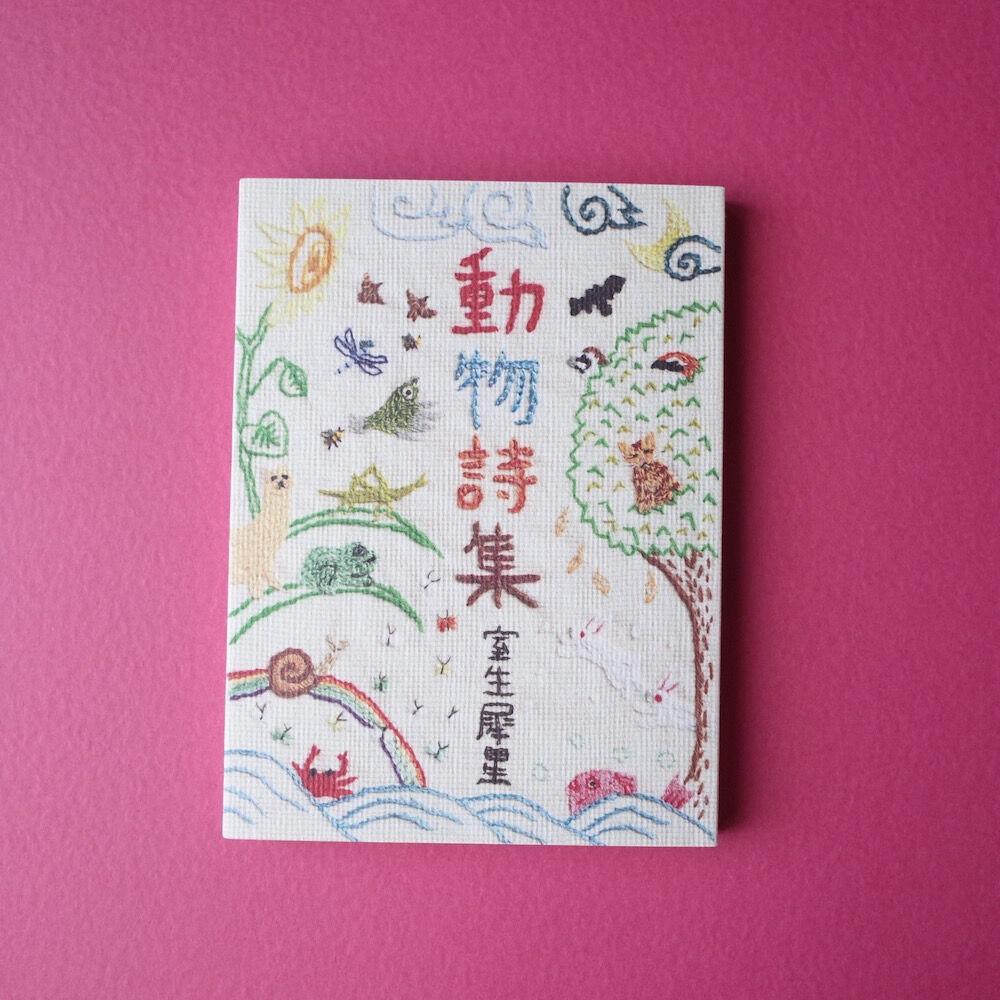 動物詩集
室生犀星